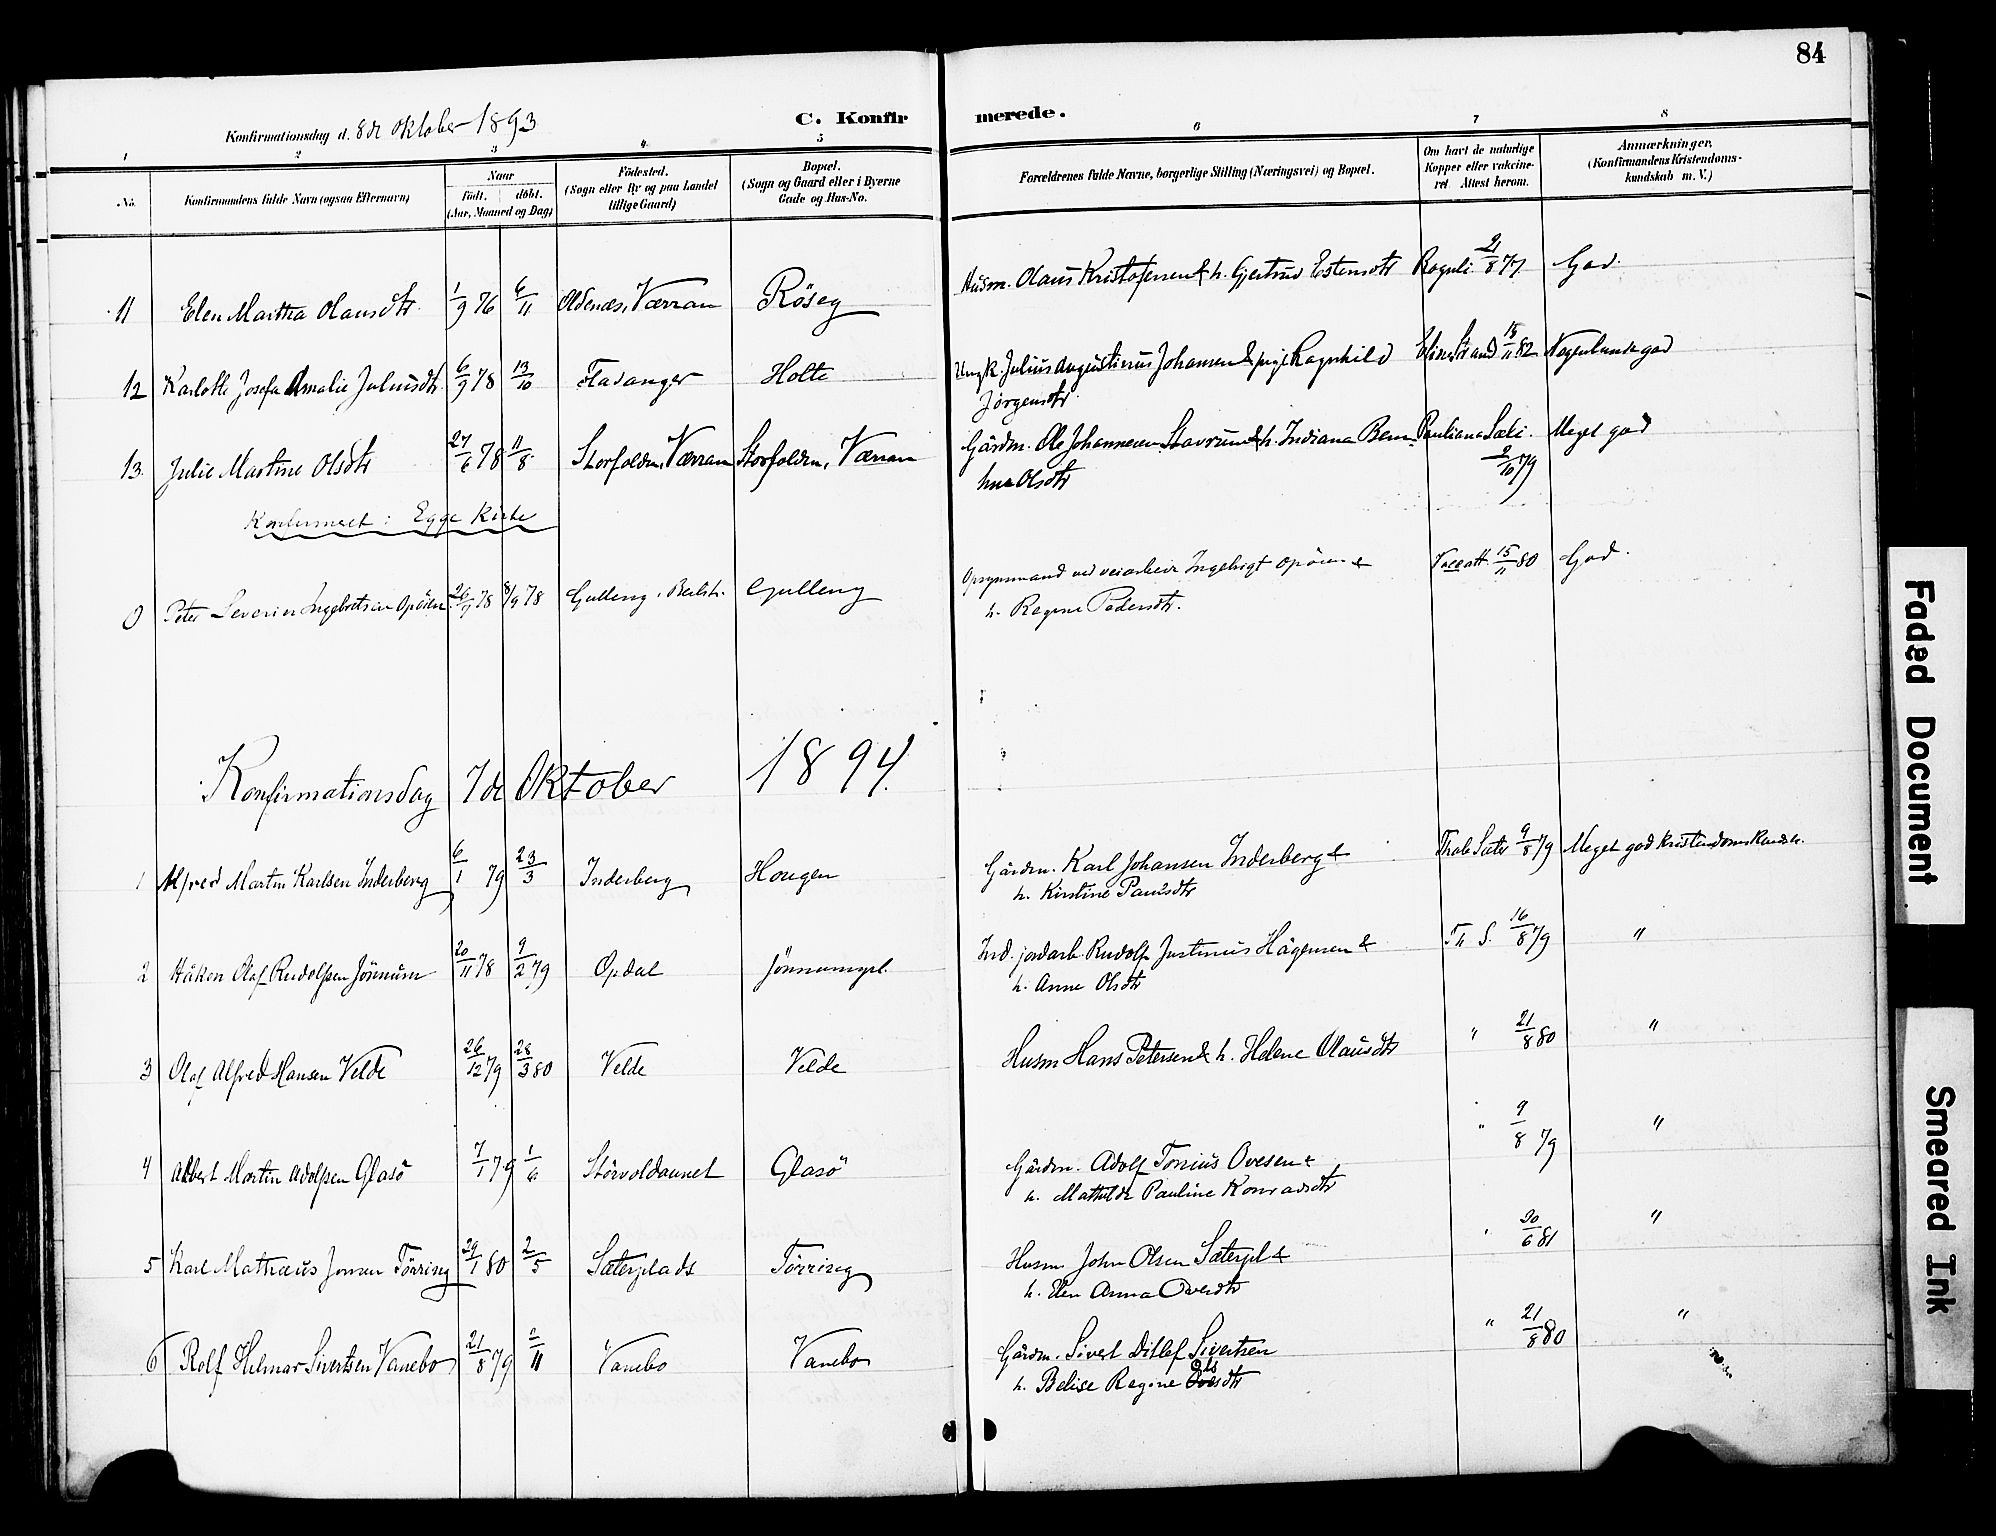 84
Konfirmationsdag d. 8de Oktober 1893
C. Konfirmerede.
1 2 3 4 5 6 7 8
No.
Konfirmandens fulde Navn (ogsaa Efternavn)
Naar
født. døbt.
(Aar, Maaned og Dag)
Fødested.
(Sogn eller By og paa Landet
tillige Gaard)
Bopæl.
(Sogn og Gaard eller i Byerne
Gade og Hus-No.
Forældrenes fulde Navne, borgerlige Stilling (Næringsvei) og Bopæl.
Om havt de naturlige
Kopper eller vakcine-
ret. Attest herom.
Anmærkninger.
(Konfirmandens Kristendoms-
kundskab m. V.)
11 Elen Martha Olausdtr 1/9 76 6/11 Oldenæs, Værran Røseg Husm. Olaus Kristofersen & h. Gjertrud Estensdtr 2/8 77 God.
12 Karlotte Josefa Amalie Juliusdtr 6/9 78 13/10 Fladanger Holte Ungk. Julius Augustinus Johansen & pige Ragnhild
Jørgensdtr
Eline Strand 18/11 82 Nogenlunde god
13. Julie Martine Olsdtr 27/6 78 11/8 Storfolden, Værran Storfolden, Værran Gårdm. Ole Johannesen Stavrum & h. Indiana Bern-
hne Olsdtr
Pauliana Sæli.
2/10 79
Meget god
Konfirmeret i Egge Kirke
0 Peter Severin Ingebretsen Opöien 26/7 78 8/9 78 Gulleng, Beilst. Gulleng Opsynsmand ved veiarbeide Ingebrigt Opöien &
h. Regine Pedersdtr.
Vacc att. 15/11 80 God.
Konfirmationsdag 7de Oktober 1894.
1 Alfred Martin Karlsen Inderberg 6/1 79 23/3 Inderberg Hougen Gårdm. Karl Johansen Inderberg &
h. Kirstine Paulsdtr
9/8 79 Meget god Kristendomskundsk.
2 Håkon Olaf Rudolfsen Jönnum 20/11 78 9/2 79 Opdal Jönnumspl. Ind. jordarb. Rudolf Justinus Hågensen &
h. Anne Olsdtr
Th S. 16/8 79 "
3 Olaf Alfred Hansen Velde 26/12 79 28/3 80 Velde Velde Husm Hans Petersen & h. Helene Olausdtr " 21/8 80 "
4 Albert Martin Adolfsen Glasö 7/1 79 1/6 Storvoldaunet Glasö Gårdm. Adolf Tonius Ovesen &
h. Mathilde Pauline Konradsdtr
" 9/8 79 "
5 Karl Mathæus Jonsen Törring 29/1 80 2/5 Sæterplads Törring Husm John Olsen Sæterpl &
h. Elen Anna Ovesdtr
" 30/6 81 "
6 Rolf Helmar Sivertsen Vanebo 21/8 79 2/11 Vanebo Vanebo Gårdm. Sivert Ditlef Sivertsen
h. Belise Regine Olsdtr
" 21/8 80 "
Faded Document
Smeared Ink